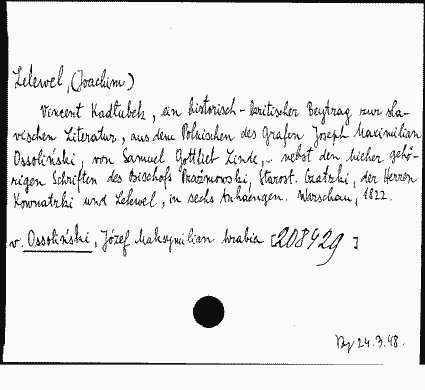 Lelewel, (Joachim)
Vincent Kadłubek, ein historisch-kritischer Beytrag zur sla-
vischen Literatur, aus dem Polnischen des Grafen Joseph Maximilian
Ossoliński, von Samuel Gottlieb Linde,.. nebst den hieher gehö-
rigen Schriften des Bischofs Prażmowski, Starost. Czatzki, der Herren
Kownatzki und Lelewel, in sechs Anhaengen. Warschau, 1822.
v. Ossoliński, Józef Maksymilian hrabia [208429]
24.3.48.